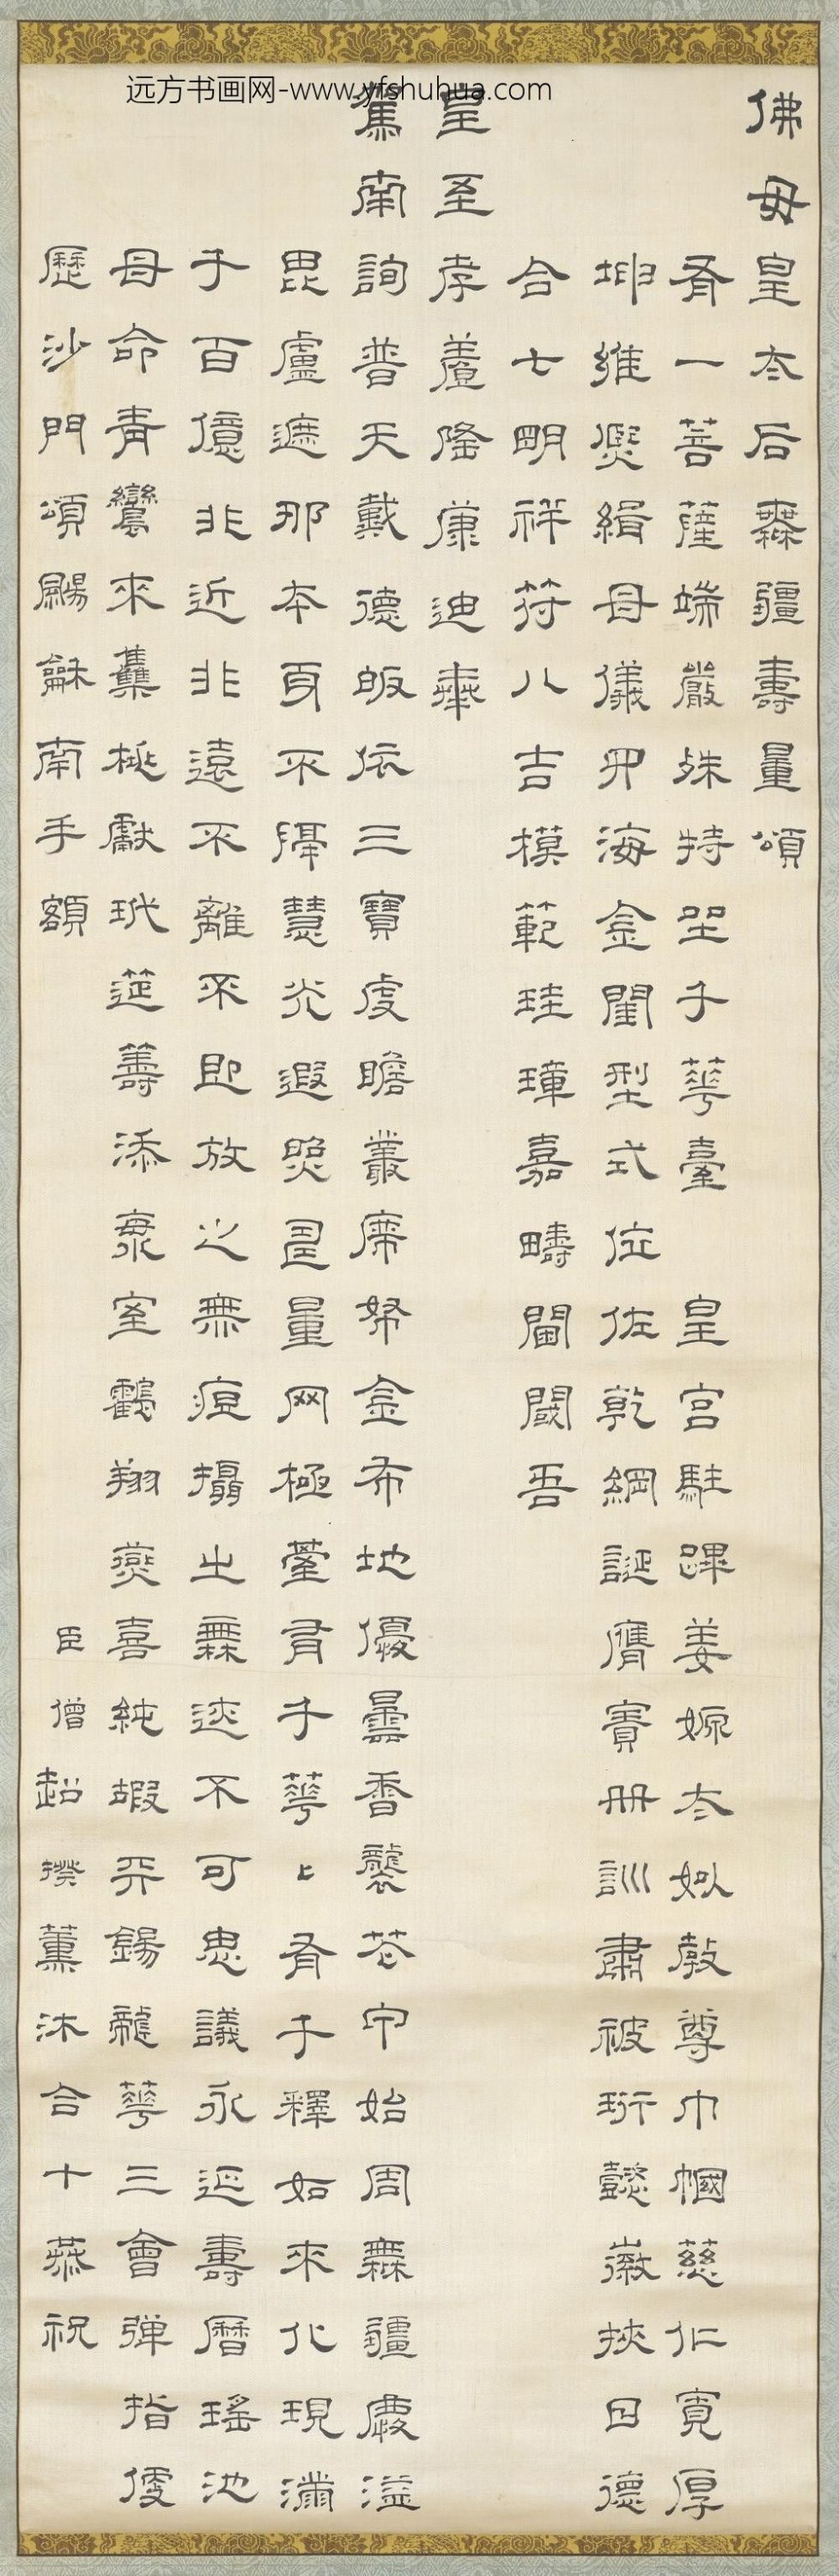 远方书画网-www.yfshuhua.com
佛母皇太后無疆壽量頌
有一菩薩端嚴殊特坐千華臺 皇宫駐蹕姜嫄太姒敵尊巾幗慈仁寬厚
坤維煕緝母儀四海金閨型式位佐乾綱誕膺寶册訓肅被珩懿徽挾日德
合七明祥符八吉模範珪璋嘉疇閫閾吾
皇至孝養隆康迪奉
篤南詢普天戴德皈依三寶虔瞻叢席帑金布地優曇香襲芯中始周無疆慶溢
毘盧遮那本身不隔慧光遐照晨量网極臺有千華上有千釋如來化現滿
千百億非近非遠不離不即放之無痕攝之無迹不可思議永延壽曆瑤池
母命青鸞來集桃獻玳筵籌添衆室鶴翔燕喜純嘏幷錫龍華三會彈指便
歷沙門頌颺龢南手額 臣僧超揆薰沐合十恭祝